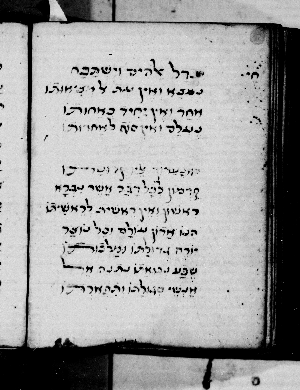 יגדל אלהים וישתבח חי
נמצא ואין עת אל מציאותו
אחד ואין יחיד כאחדותו
נעלם ואין סוף לאחדותו
קדמון לכל דבר אשר נברא
ראשון ואין ראשית לראשיתו
הנו אדון עולם וכל נוצר
יורה גדולתו ומלכותו
שפע נבואתו נתנה אל
אנשי סגולתו ותפארתו